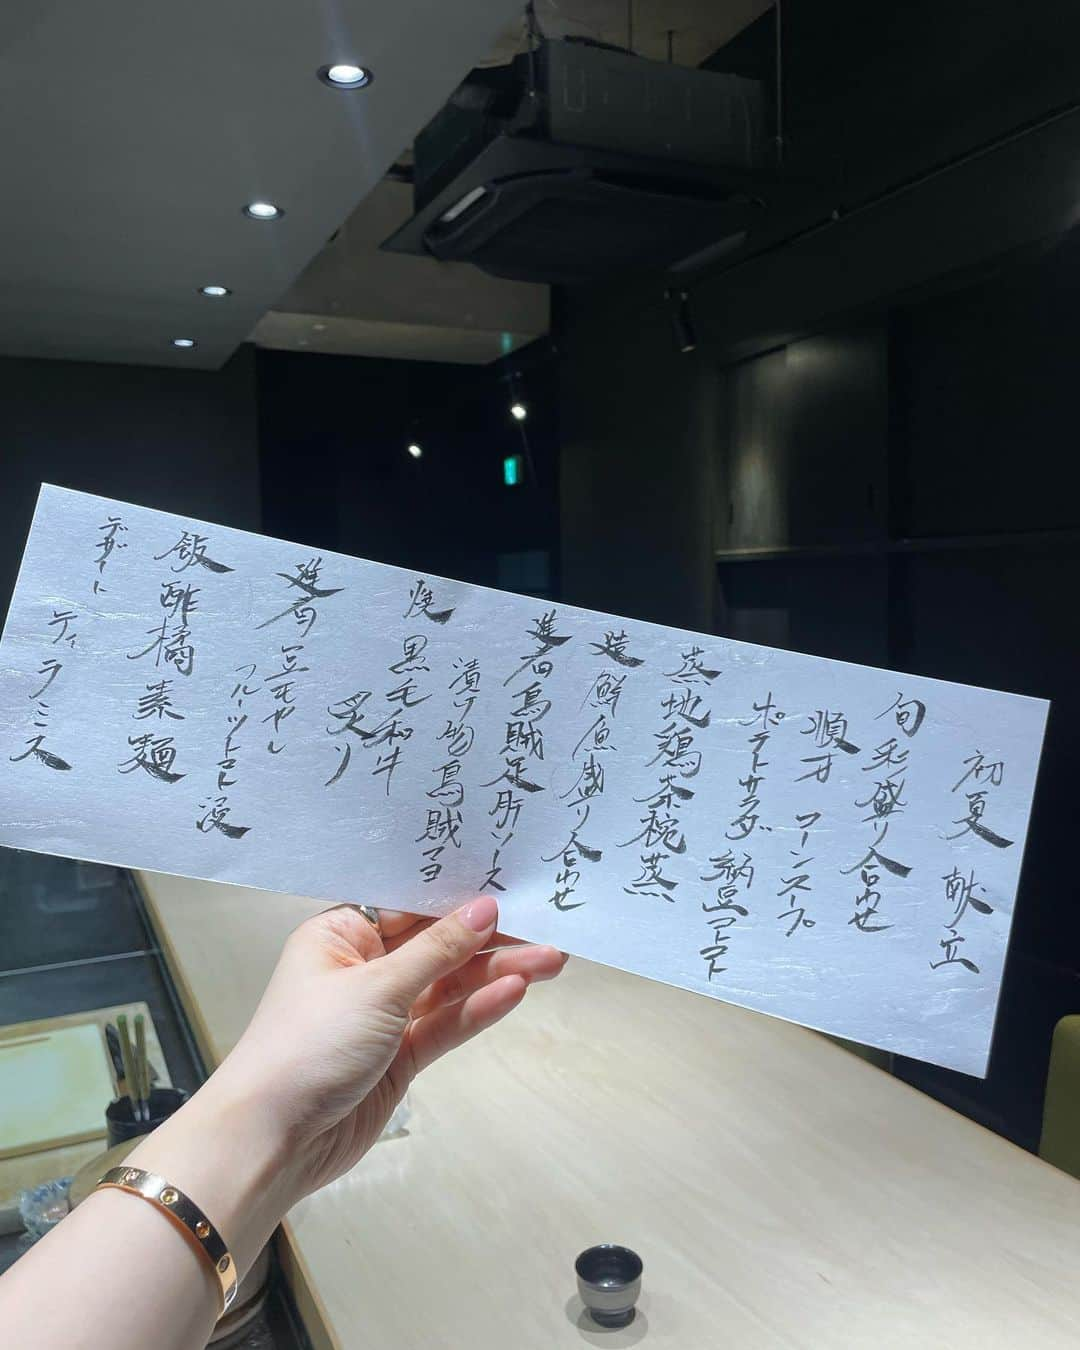 初夏 献立
旬彩盛り合わせ
順才 コーンスープ
ポテトサラダ 納豆 トマト
蒸 地鶏茶碗蒸
造 鮮魚盛り合わせ
進肴 烏賊足肝ソース
漬け物烏賊マヨ
焼 黒毛和牛
炙り
進肴 豆モヤシ
フルーツトマト浸
飯 酢橘素麺
デザート ティラミス